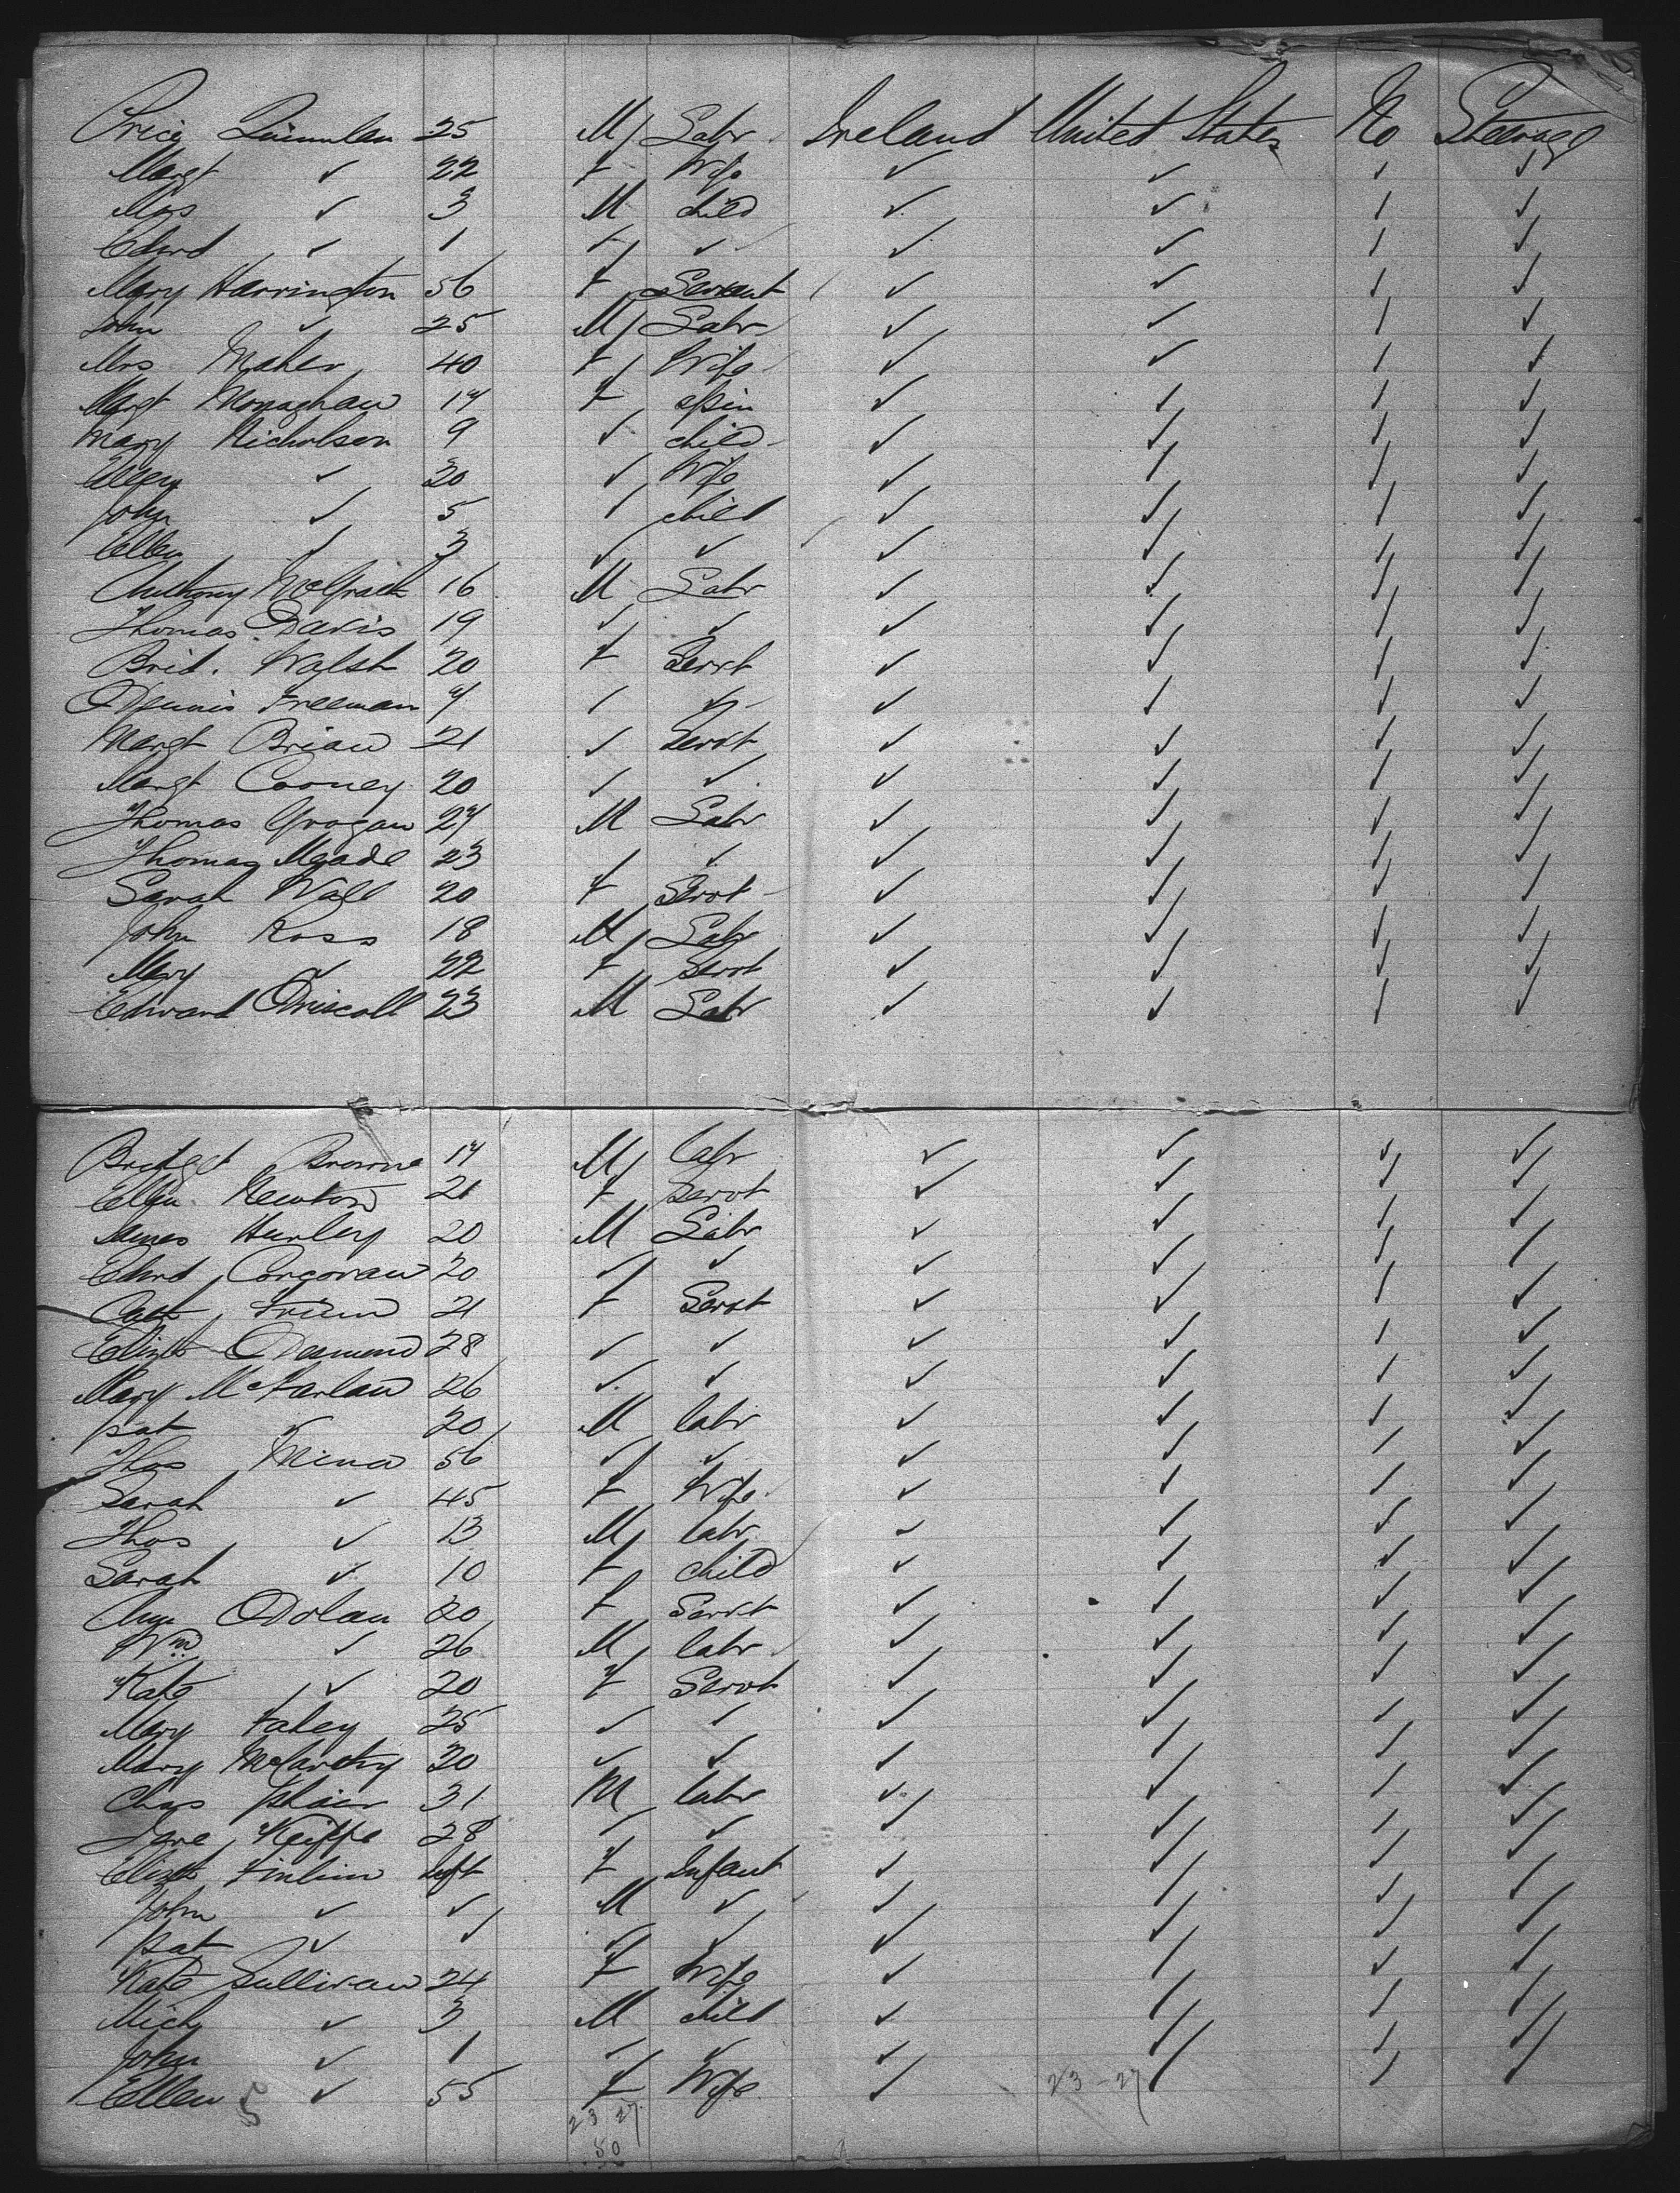 Price Quinnlan 25 M Labr Ireland United States No Steerage
Margt ✓ 22 F Wife ✓ ✓ ✓ ✓
✓ 3 M child ✓ ✓ ✓ ✓
Edwd ✓ 1 ✓ ✓ ✓ ✓ ✓ ✓
Mary Harrington 56 F Servant ✓ ✓ ✓ ✓
John ✓ 25 M Labr ✓ ✓ ✓ ✓
Mrs Maher 40 F Wife ✓ ✓ ✓ ✓
Margt Monaghan 17 F spin ✓ ✓ ✓ ✓
Mary Nicholson 9 ✓ child ✓ ✓ ✓ ✓
Ellen ✓ 30 ✓ Wife ✓ ✓ ✓ ✓
John ✓ 5 ✓ child ✓ ✓ ✓ ✓
Ellen ✓ 3 ✓ ✓ ✓ ✓ ✓ ✓
Anthony McGrath 16 M Labr ✓ ✓ ✓ ✓
Thomas Davis 19 ✓ ✓ ✓ ✓ ✓ ✓
Brid. Walsh 20 F Servt ✓ ✓ ✓ ✓
Dennis Freeman ✓ ✓ ✓ ✓ ✓ ✓
Margt Brian 21 ✓ Servt ✓ ✓ ✓ ✓
Margt Cooney 20 ✓ ✓ ✓ ✓ ✓ ✓
Thomas Grogan 27 M Labr ✓ ✓ ✓ ✓
Thomas Meade 23 ✓ ✓ ✓ ✓ ✓ ✓
Sarah Wall 20 F Servt ✓ ✓ ✓ ✓
John Ross 18 M Labr ✓ ✓ ✓ ✓
Mary ✓ 22 F Servt ✓ ✓ ✓ ✓
Edward Driscoll 23 M Labr ✓ ✓ ✓ ✓
Bridget Browne 17 M labr ✓ ✓ ✓ ✓
Ellen Newton 21 F Servt ✓ ✓ ✓ ✓
James Hurley 20 M Labr ✓ ✓ ✓ ✓
Edwd Corcoran 20 ✓ ✓ ✓ ✓ ✓ ✓
Cath 21 F Servt ✓ ✓ ✓ ✓
Elizth Desmond 28 ✓ ✓ ✓ ✓ ✓ ✓
Mary McFarlan 26 ✓ ✓ ✓ ✓ ✓ ✓
pat ✓ 20 M labr ✓ ✓ ✓ ✓
Thos Mina 56 ✓ ✓ ✓ ✓ ✓ ✓
Sarah ✓ 45 F Wife ✓ ✓ ✓ ✓
Thos ✓ 13 M labr ✓ ✓ ✓ ✓
Sarah ✓ 10 F child ✓ ✓ ✓ ✓
Ann Dolan 20 F Servt ✓ ✓ ✓ ✓
Wm ✓ 26 M labr ✓ ✓ ✓ ✓
Kate ✓ 20 F Servt ✓ ✓ ✓ ✓
Mary Fahey 25 ✓ ✓ ✓ ✓ ✓ ✓
Mary McCarthy 30 ✓ ✓ ✓ ✓ ✓ ✓
Chas 31 M labr ✓ ✓ ✓ ✓
Keiffe 28 ✓ ✓ ✓ ✓ ✓ ✓
Elizth Finlim Inft F Infant ✓ ✓ ✓ ✓
John ✓ ✓ M ✓ ✓ ✓ ✓ ✓
pat ✓ ✓ ✓ ✓ ✓ ✓ ✓ ✓
Kate Sullivan 24 F Wife ✓ ✓ ✓ ✓
Mich ✓ 3 M child ✓ ✓ ✓ ✓
John ✓ 1 ✓ ✓ ✓ ✓ ✓ ✓
Ellen ✓ 55 F Wife ✓ ✓ ✓ ✓
23 27 23-27
50